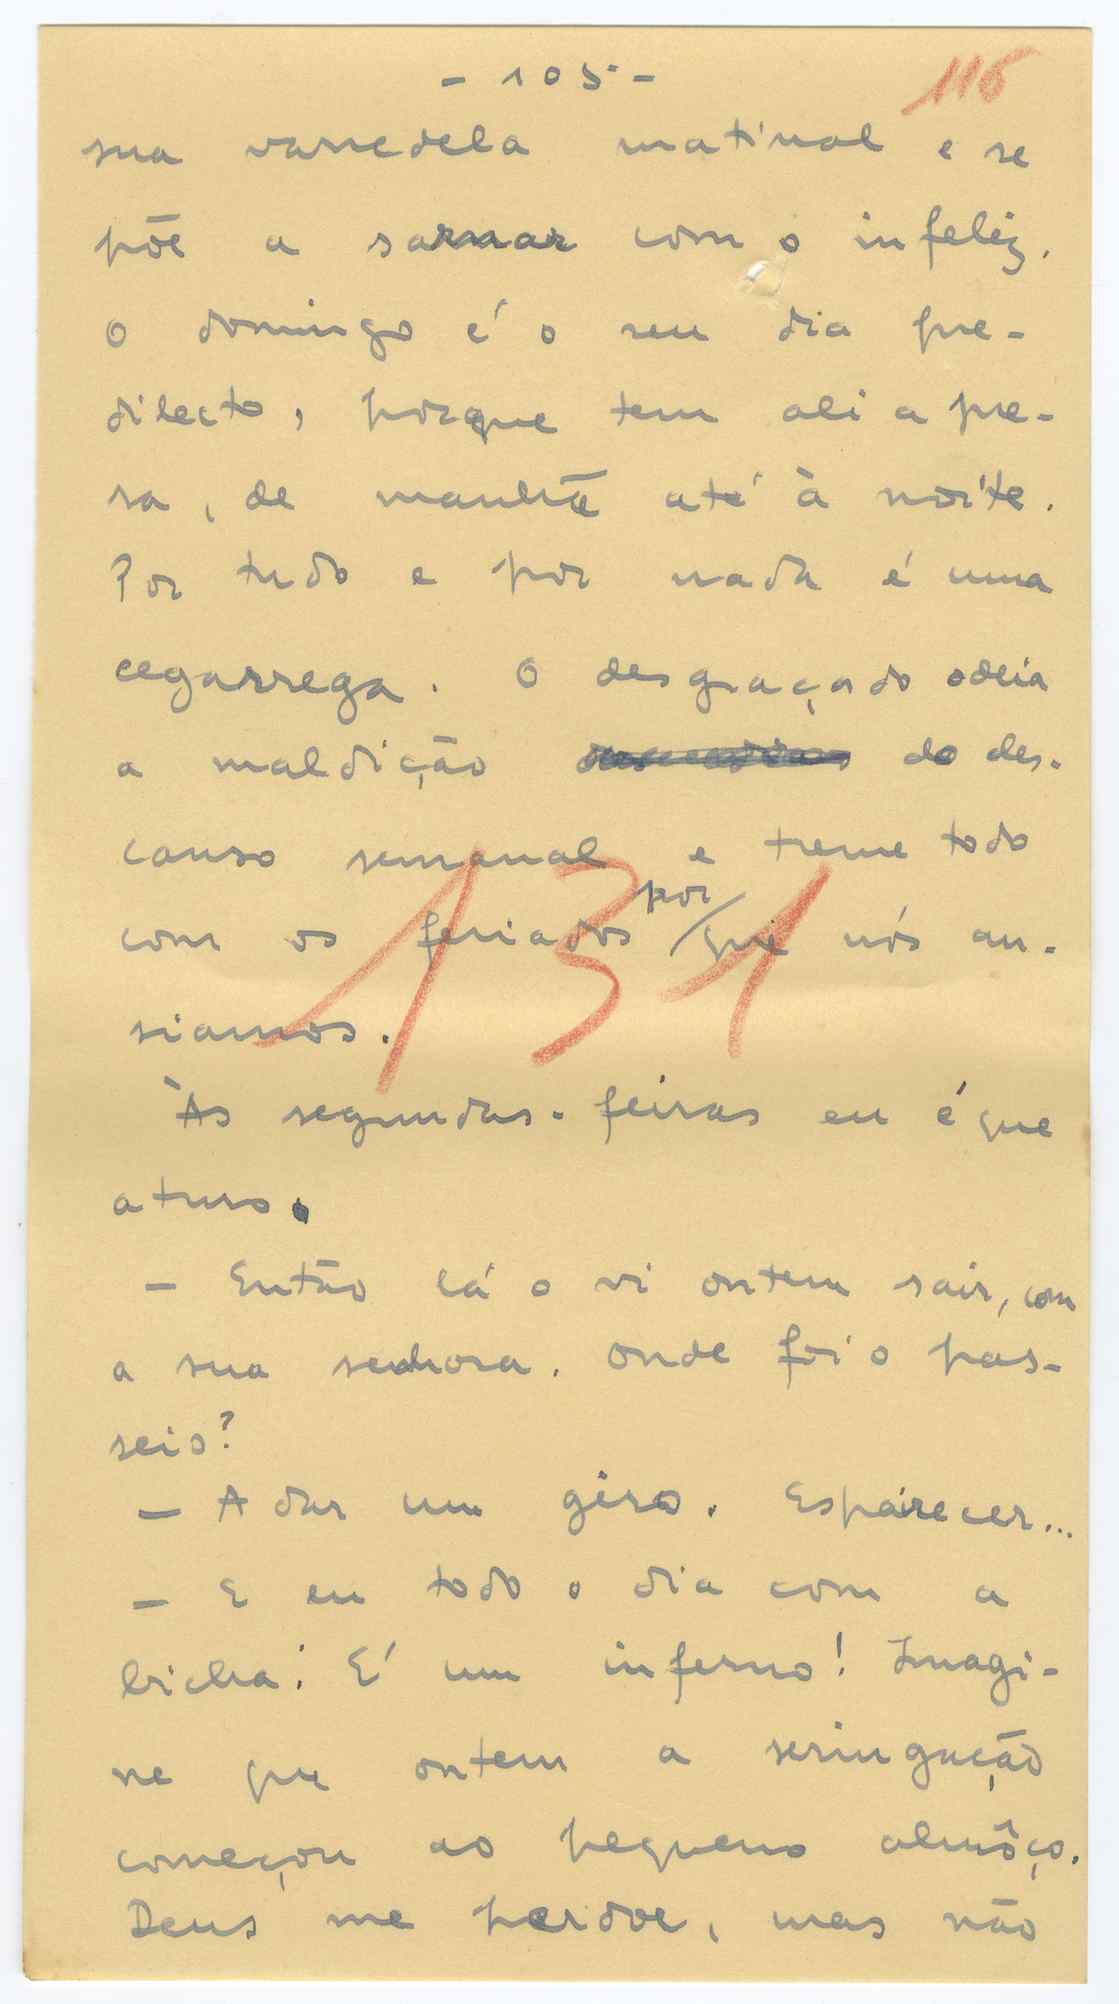 - 105 - 116
sua varredela matinal e se
põe a sarnar com o infeliz.
O domingo é o seu dia pre-
dilecto, porque tem ali a pre-
sa, de manhã até à noite.
Por tudo e por nada é uma
cegarrega. O desgraçado odeia
a maldição do des-
canso semanal e treme todo
por
com os feriados que nós an-
siamos.
131
Às segundas-feiras eu é que
aturo.
- Então lá o vi ontem sair, com
a sua senhora. Onde foi o pas-
seio?
- A dar um giro. Espairecer...
- E eu todo o dia com a
bicha! É um inferno! Imagi-
ne que ontem a seringação
começou ao pequeno almôço.
Deus me perdoe, mas não